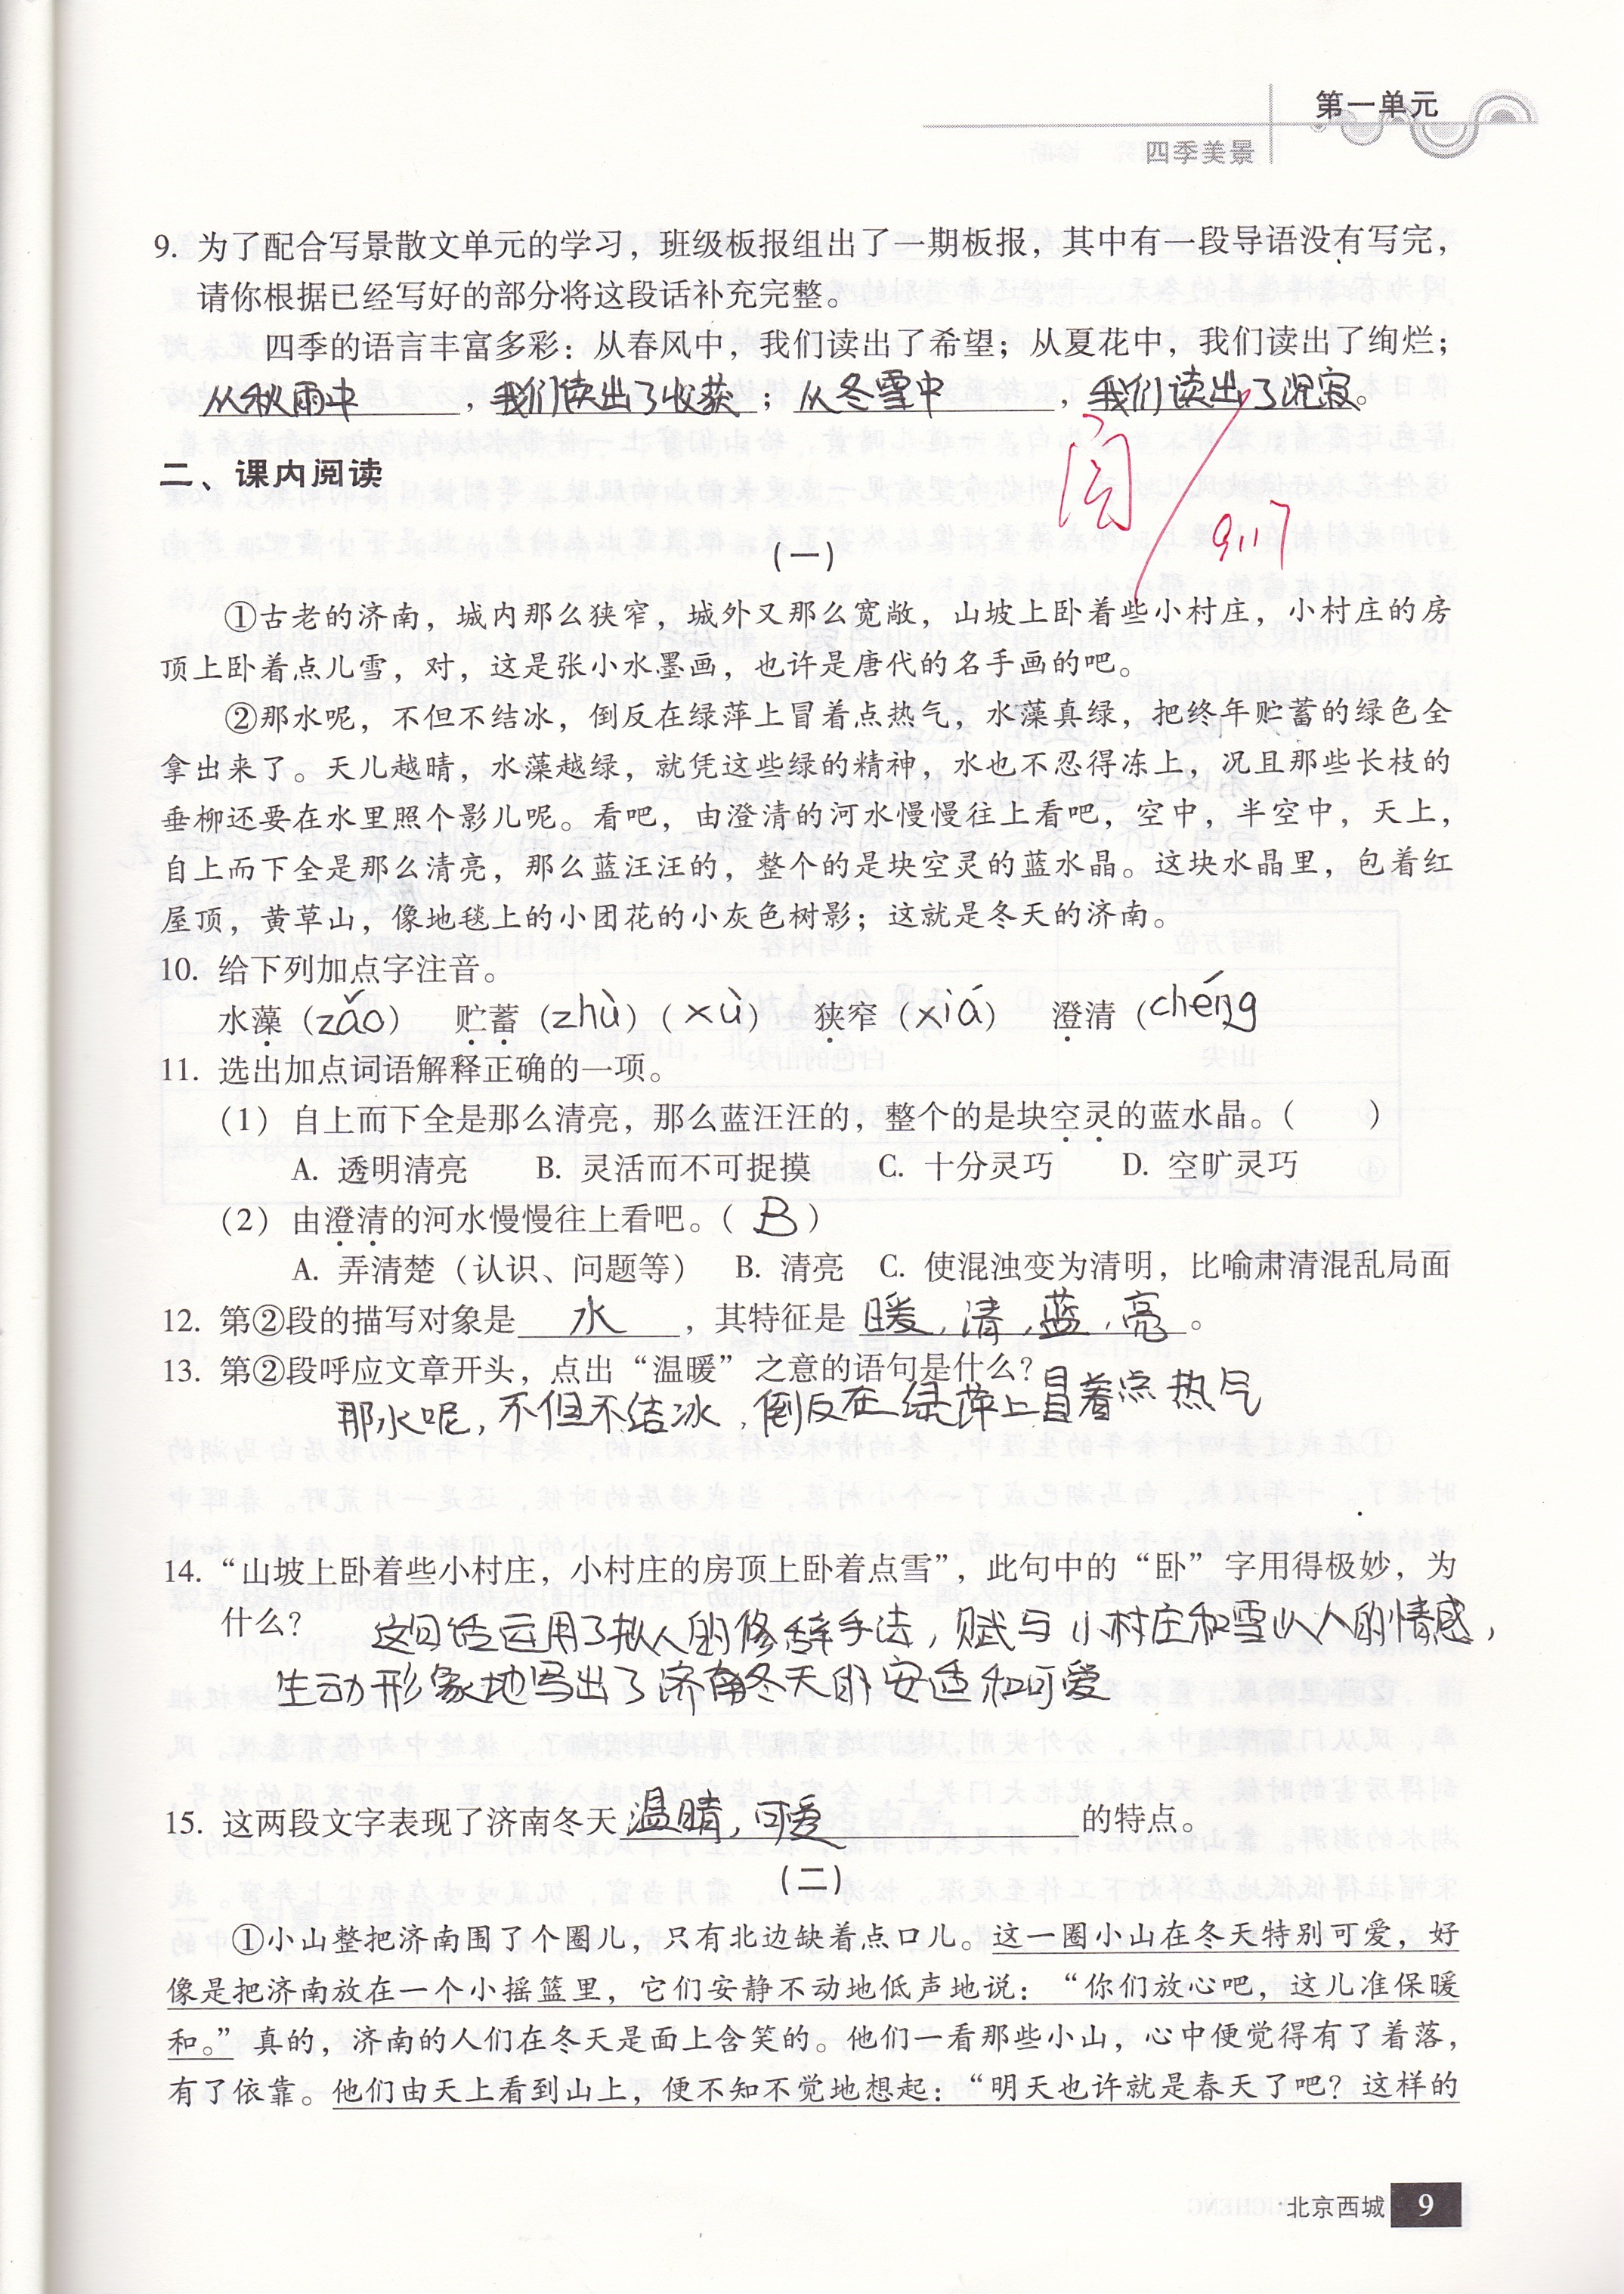 第一单元
四季美景
9. 为了配合写景散文单元的学习，班级板报组出了一期板报，其中有一段导语没有写完，
请你根据已经写好的部分将这段话补充完整。
四季的语言丰富多彩：从春风中，我们读出了希望；从夏花中，我们读出了绚烂；
从秋雨中，我们读出了收获；从冬雪中，我们读出了沉寂。
阅
9.17
二、课内阅读
（一）
①古老的济南，城内那么狭窄，城外又那么宽敞，山坡上卧着些小村庄，小村庄的房
顶上卧着点儿雪，对，这是张小水墨画，也许是唐代的名手画的吧。
②那水呢，不但不结冰，倒反在绿萍上冒着点热气，水藻真绿，把终年贮蓄的绿色全
拿出来了。天儿越晴，水藻越绿，就凭这些绿的精神，水也不忍得冻上，况且那些长枝的
垂柳还要在水里照个影儿呢。看吧，由澄清的河水慢慢往上看吧，空中，半空中，天上，
自上而下全是那么清亮，那么蓝汪汪的，整个的是块空灵的蓝水晶。这块水晶里，包着红
屋顶，黄草山，像地毯上的小团花的小灰色树影；这就是冬天的济南。
10. 给下列加点字注音。
水藻（zǎo） 贮蓄（zhù）（xù） 狭窄（xiá） 澄清（chéng
11. 选出加点词语解释正确的一项。
（1）自上而下全是那么清亮，那么蓝汪汪的，整个的是块空灵的蓝水晶。（ ）
A. 透明清亮 B. 灵活而不可捉摸 C. 十分灵巧 D. 空旷灵巧
（2）由澄清的河水慢慢往上看吧。（ B ）
A. 弄清楚（认识、问题等） B. 清亮 C. 使混浊变为清明，比喻肃清混乱局面
12. 第②段的描写对象是 水 ，其特征是 暖，清，蓝，亮 。
13. 第②段呼应文章开头，点出“温暖”之意的语句是什么？
那水呢，不但不结冰，倒反在绿萍上冒着点热气
14. “山坡上卧着些小村庄，小村庄的房顶上卧着点雪”，此句中的“卧”字用得极妙，为
什么？ 这句话运用了拟人的修辞手法，赋与小村庄和雪以人的情感，
生动形象地写出了济南冬天的安适和可爱
15. 这两段文字表现了济南冬天 温晴，可爱 的特点。
（二）
①小山整把济南围了个圈儿，只有北边缺着点口儿。这一圈小山在冬天特别可爱，好
像是把济南放在一个小摇篮里，它们安静不动地低声地说：“你们放心吧，这儿准保暖
和。”真的，济南的人们在冬天是面上含笑的。他们一看那些小山，心中便觉得有了着落，
有了依靠。他们由天上看到山上，便不知不觉地想起：“明天也许就是春天了吧？这样的
·北京西城 9